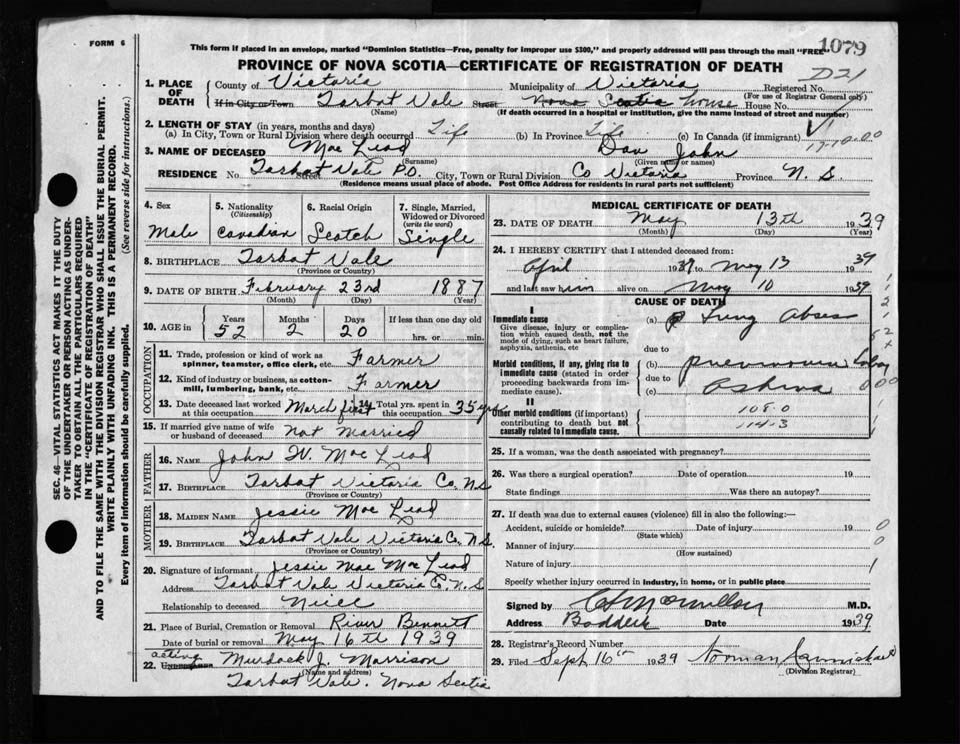 FORM 6
This form if placed in an envelope, marked "Dominion Statistics—Free, penalty for improper use $300," and properly addressed will pass through the mail "FREE"
1079
PROVINCE OF NOVA SCOTIA—CERTIFICATE OF REGISTRATION OF DEATH
D21
1. PLACE OF DEATH
County of Victoria Municipality of Victoria Registered No.
(For use of Registrar General only)
If in City or Town Tarbat Vale Street Nova Scotia House No.
(Name) (If death occurred in a hospital or institution, give the name instead of street and number)
2. LENGTH OF STAY (in years, months and days)
(a) In City, Town or Rural Division where death occurred Life (b) In Province Life (c) In Canada (if immigrant)
3. NAME OF DECEASED Mac Lead Dan John
(Surname) (Given name or names)
RESIDENCE No. Tarbat Vale P.O. Street City, Town or Rural Division Co Victoria Province N. S.
(Residence means usual place of abode. Post Office Address for residents in rural parts not sufficient)
4. Sex Male
5. Nationality (Citizenship) Canadian
6. Racial Origin Scotch
7. Single, Married, Widowed or Divorced (write the word) Single
8. BIRTHPLACE Tarbat Vale
(Province or Country)
9. DATE OF BIRTH February 23rd 1887
(Month) (Day) (Year)
10. AGE in Years 52 Months 2 Days 20 If less than one day old
hrs. or min.
OCCUPATION
11. Trade, profession or kind of work as spinner, teamster, office clerk, etc. Farmer
12. Kind of industry or business, as cotton-mill, lumbering, bank, etc. Farmer
13. Date deceased last worked at this occupation March first 14. Total yrs. spent in this occupation 35 yrs
15. If married give name of wife or husband of deceased Not Married
FATHER
16. NAME John W. Mac Lead
17. BIRTHPLACE Tarbat Victoria Co. N.S
(Province or Country)
MOTHER
18. MAIDEN NAME Jessie Mac Lead
19. BIRTHPLACE Tarbat Vale Victoria Co. N.S.
(Province or Country)
20. Signature of informant Jessie Mae Mac Lead
Address Tarbat Vale Victoria Co. N.S
Relationship to deceased Niece
21. Place of Burial, Cremation or Removal River Bennett
Date of burial or removal May 16th 1939
22. acting Undertaker Murdock J. Morrison
(Name and address)
Tarbat Vale. Nova Scotia
MEDICAL CERTIFICATE OF DEATH
23. DATE OF DEATH May 13th 1939
(Month) (Day) (Year)
24. I HEREBY CERTIFY that I attended deceased from:
April 1939 to May 13 1939
and last saw him alive on May 10 1939
CAUSE OF DEATH
I
Immediate cause
Give disease, injury or complication which caused death, not the mode of dying, such as heart failure, asphyxia, asthenia, etc
(a) Lung Abscess
due to
Morbid conditions, if any, giving rise to immediate cause (stated in order proceeding backwards from immediate cause).
(b)
due to
(c)
II
Other morbid conditions (if important) contributing to death but not causally related to immediate cause.
108.0
114.3
25. If a woman, was the death associated with pregnancy?
26. Was there a surgical operation? Date of operation 19
State findings Was there an autopsy?
27. If death was due to external causes (violence) fill in also the following:—
Accident, suicide or homicide? Date of injury 19
(State which)
Manner of injury
(How sustained)
Nature of injury
Specify whether injury occurred in industry, in home, or in public place
Signed by M.D.
Address Baddeck Date 1939
28. Registrar's Record Number
29. Filed Sept 16th 1939 Norman
(Division Registrar)
SEC. 46—VITAL STATISTICS ACT MAKES IT THE DUTY
OF THE UNDERTAKER OR PERSON ACTING AS UNDER-
TAKER TO OBTAIN ALL THE PARTICULARS REQUIRED
IN THE "CERTIFICATE OF REGISTRATION OF DEATH"
AND TO FILE THE SAME WITH THE DIVISION REGISTRAR WHO SHALL ISSUE THE BURIAL PERMIT.
WRITE PLAINLY WITH UNFADING INK. THIS IS A PERMANENT RECORD.
Every item of information should be carefully supplied. (See reverse side for instructions.)